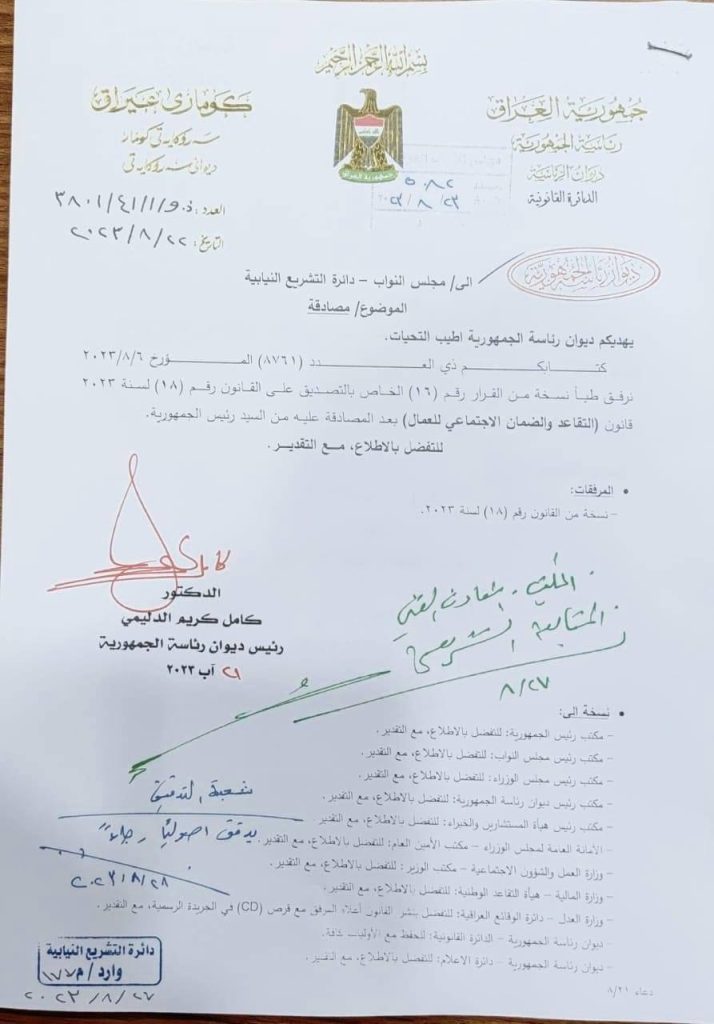 بسم الله الرحمن الرحيم
جمهورية العراق
رئاسة الجمهورية
ديوان الرئاسة
الدائرة القانونية
كۆماری عێراق
سەرۆکایەتی کۆمار
دیوانی سەرۆکایەتی
جمهورية العراق
٥٠٨٢
٢٠٢٣/٨/٢٣
العدد: ذ.و/١/٤١/٣٨٠١
التاريخ: ٢٠٢٣/٨/٢٢
ديوان رئاسة الجمهورية
الى/ مجلس النواب – دائرة التشريع النيابية
الموضوع/ مصادقة
يهديكم ديوان رئاسة الجمهورية اطيب التحيات.
كتابكم ذي العدد (٨٧٦١) المؤرخ ٢٠٢٣/٨/٦
نرفق طياً نسخة من القرار رقم (١٦) الخاص بالتصديق على القانون رقم (١٨) لسنة ٢٠٢٣
قانون (التقاعد والضمان الاجتماعي للعمال) بعد المصادقة عليه من السيد رئيس الجمهورية.
للتفضل بالاطلاع، مع التقدير.
• المرفقات:
– نسخة من القانون رقم (١٨) لسنة ٢٠٢٣.
كامل
الدكتور
كامل كريم الدليمي
رئيس ديوان رئاسة الجمهورية
٢١ آب ٢٠٢٣
المتابعة
٨/٢٧
• نسخة الى:
– مكتب رئيس الجمهورية: للتفضل بالاطلاع، مع التقدير.
– مكتب رئيس مجلس النواب: للتفضل بالاطلاع، مع التقدير.
– مكتب رئيس مجلس الوزراء: للتفضل بالاطلاع، مع التقدير.
– مكتب رئيس ديوان رئاسة الجمهورية: للتفضل بالاطلاع، مع التقدير.
– مكتب رئيس هيأة المستشارين والخبراء: للتفضل بالاطلاع، مع التقدير
– الأمانة العامة لمجلس الوزراء – مكتب الأمين العام: للتفضل بالاطلاع، مع التقدير.
– وزارة العمل والشؤون الاجتماعية – مكتب الوزير: للتفضل بالاطلاع، مع التقدير.
– وزارة المالية – هيأة التقاعد الوطنية: للتفضل بالاطلاع، مع التقدير.
– وزارة العدل – دائرة الوقائع العراقية: للتفضل بنشر القانون أعلاه المرفق مع قرص (CD) في الجريدة الرسمية، مع التقدير.
– ديوان رئاسة الجمهورية – الدائرة القانونية: للحفظ مع الأوليات كافة.
– ديوان رئاسة الجمهورية – دائرة الاعلام: للتفضل بالاطلاع، مع التقدير.
شعبة التدقيق
يدقق اصولياً رجاءً
٢٠٢٣/٨/٢٨
دائرة التشريع النيابية
وارد/م ١٧٧
٢٠٢٣/٨/٢٧
دعاء ٨/٢١